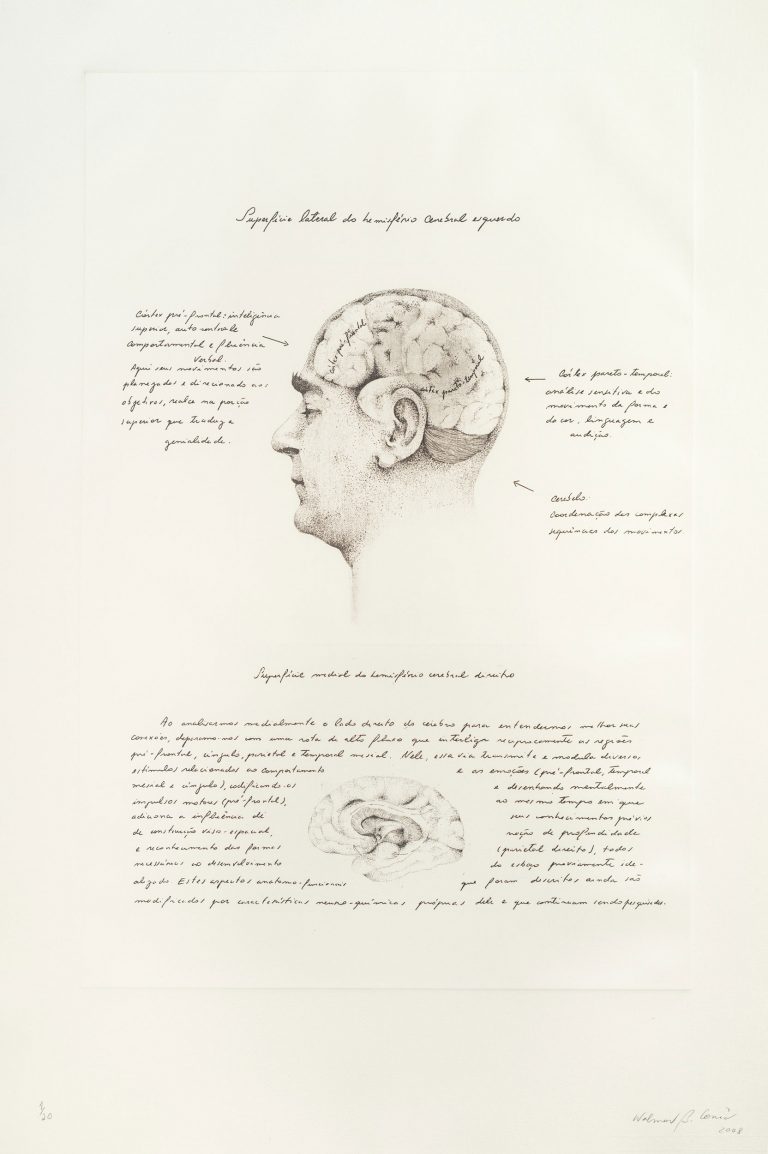 Superfície lateral do hemisfério cerebral esquerdo
Córtex pré-frontal: inteligência
superior, auto controle
comportamental e fluência
verbal.
Aqui seus movimentos são
planegados e direcionado aos
objetivos, realce na porção
superior que traduz a
genialidade.
córtex pré-frontal
córtex pareto-temporal
Córtex pareto-temporal:
análise sensitiva e do
movimento da forma e
da cor, linguagem e
audição.
Cerebelo:
Coordenação das complexas
sequências dos movimentos.
Superfície medial do hemisfério cerebral direito
Ao analisarmos medialmente o lado direito do cérebro para entendermos melhor suas
conexões, deparamo-nos com uma rota de alto fluxo que interliga reciprocamente as regiões
pré-frontal, cíngulo, parietal e temporal mesial. Nele, essa via transmite e modula diversos
estímulos relacionados ao comportamento e as emoções (pré-frontal, temporal
mesial e cíngulo), codificando os e desenhando mentalmente
impulsos motores (pré-frontal), ao mesmo tempo em que
adiciona a influência de seus conhecimentos prévios
de construção vísuo-espacial, noção de profundidade
e reconhecimento das formas (parietal direito), todos
necessárias ao desenvolvimento do esboço previamente ide-
alizado. Estes aspectos anatomo-funcionais que foram descritos ainda são
modificados por características neuro-químicas próprias dele e que continuam sendo pesquisadas.
/20
2008